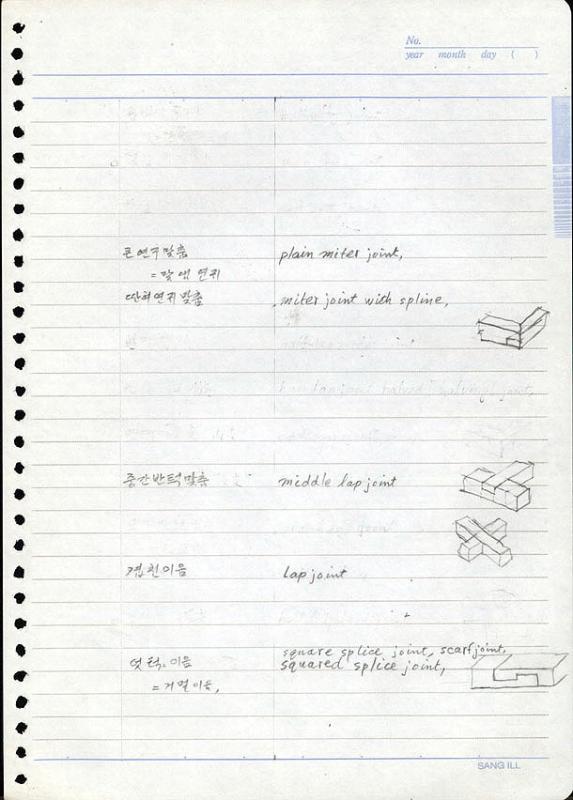 No.
year month day ( )
큰연귀맞춤 plain miter joint,
= 맞댐 연귀
딴혀연귀맞춤 miter joint with spline,
중간반턱맞춤 middle lap joint
겹친이음 lap joint
square splice joint, scarf joint,
엇턱이음 squared splice joint,
= 거멀이음,
SANG ILL